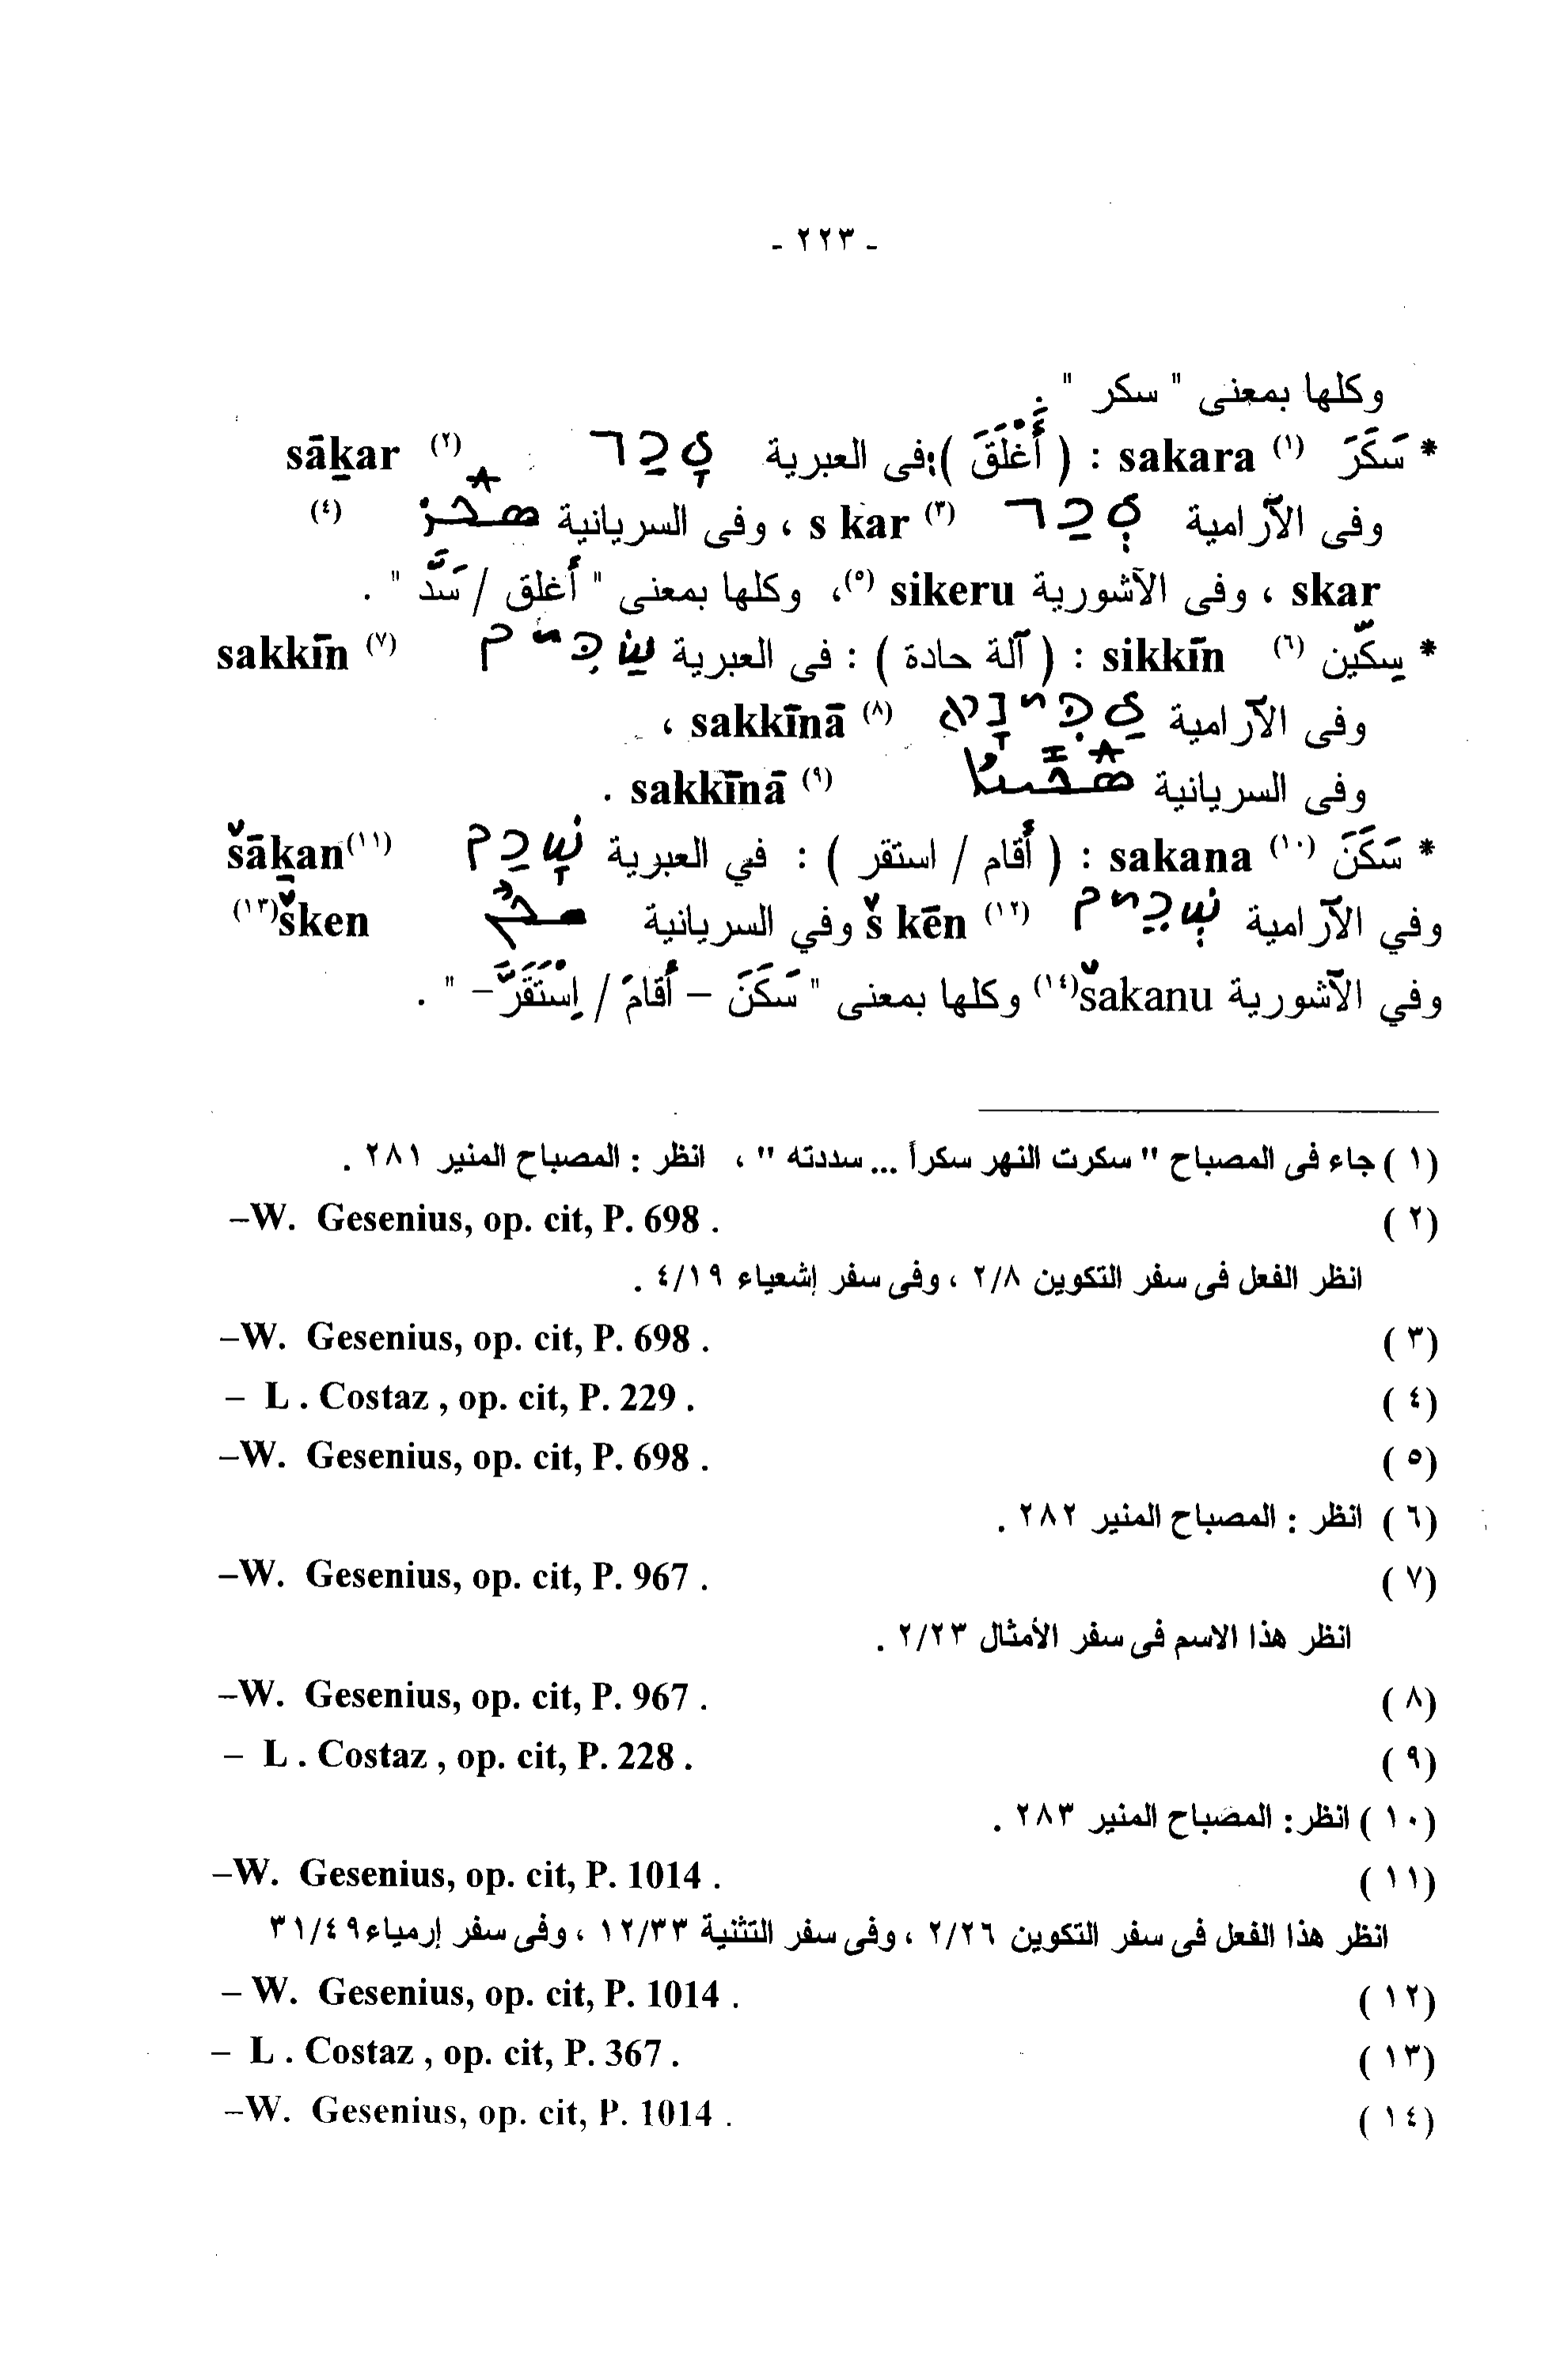 - ٢٢٣ -
وكلها بمعنى " سكر " .
* سَكَرَ (١) sakara : ( أَغْلَقَ ):فى العبرية סָכַר (٢) sāḵar
وفى الآرامية סְכַר (٣) s kar ، وفى السريانية ܣܟܪ (٤)
skar ، وفى الآشورية sikeru (٥)، وكلها بمعنى " أغلق / سَدَّ " .
* سِكّين (٦) sikkīn : ( آلة حادة ) : فى العبرية שַׂכִּין (٧) sakkīn
وفى الآرامية סַכִּינָא (٨) sakkīnā ،
وفى السريانية ܣܟܝܢܐ (٩) sakkīnā .
* سَكَنَ (١٠) sakana : ( أقام / استقر ) : في العبرية שָׁכַן (١١) šāḵan
وفي الآرامية שְׁכֵין (١٢) š kēn وفي السريانية ܫܟܢ (١٣) šken
وفي الآشورية šakanu (١٤) وكلها بمعنى " سَكَنَ – أَقَامَ / اِسْتَقَرَّ – " .
(١) جاء فى المصباح " سكرت النهر سكراً ... سددته " ، انظر : المصباح المنير ٢٨١ .
(٢) –W. Gesenius, op. cit, P. 698 .
انظر الفعل فى سفر التكوين ٢/٨ ، وفى سفر إشعياء ٤/١٩ .
(٣) –W. Gesenius, op. cit, P. 698 .
(٤) – L . Costaz , op. cit, P. 229 .
(٥) –W. Gesenius, op. cit, P. 698 .
(٦) انظر : المصباح المنير ٢٨٢ .
(٧) –W. Gesenius, op. cit, P. 967 .
انظر هذا الاسم فى سفر الأمثال ٢/٢٣ .
(٨) –W. Gesenius, op. cit, P. 967 .
(٩) – L . Costaz , op. cit, P. 228 .
(١٠) انظر: المصباح المنير ٢٨٣ .
(١١) –W. Gesenius, op. cit, P. 1014 .
انظر هذا الفعل فى سفر التكوين ٢/٢٦ ، وفى سفر التثنية ١٢/٣٣ ، وفى سفر إرمياء ٣١/٤٩
(١٢) – W. Gesenius, op. cit, P. 1014 .
(١٣) – L . Costaz , op. cit, P. 367 .
(١٤) –W. Gesenius, op. cit, P. 1014 .